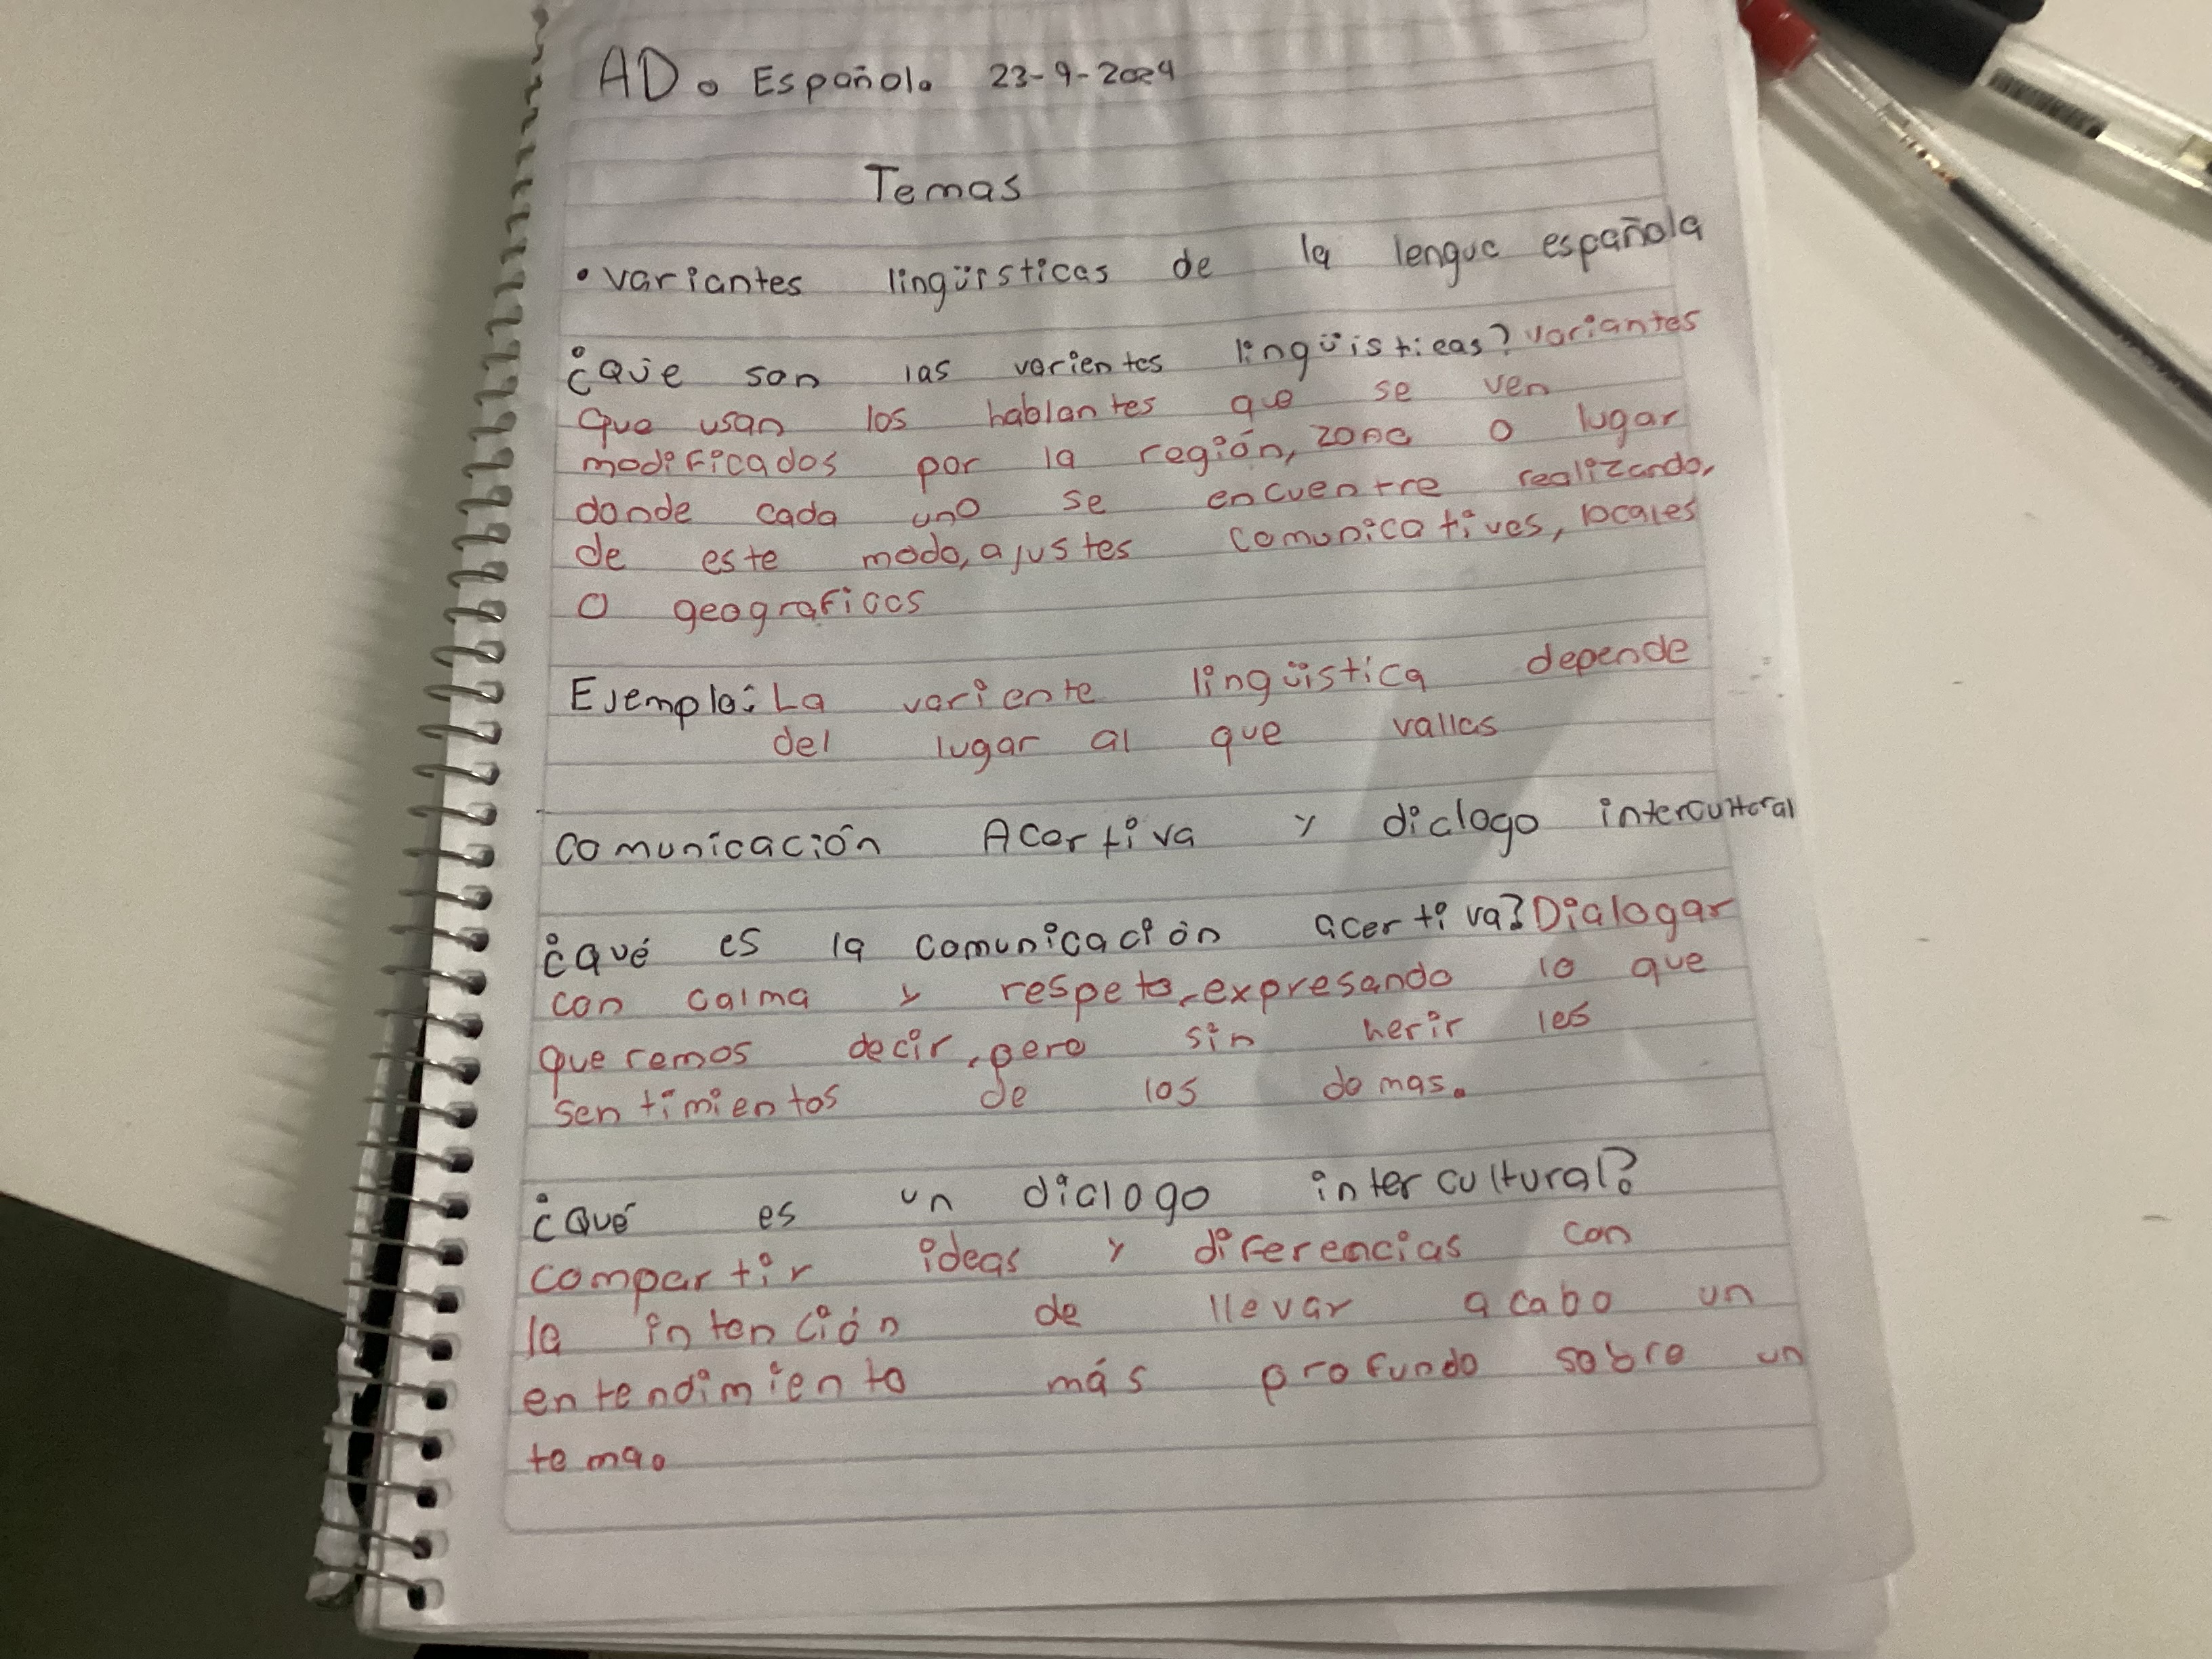 AD. Español. 23-9-2024
Temas
• variantes lingüisticas de la lengua española
¿Que son las varientes lingüisticas? variantes
que usan los hablantes que se ven
modificados por la región, zona o lugar
donde cada uno se encuentre realizando,
de este modo, ajustes comunicatives, locales
o geograficos
Ejemplo: La variente lingüística depende
del lugar al que vallas
comunicación Acertiva y dialogo intercultural
¿Qué es la comunicación acertiva? Dialogar
con calma y respeto, expresando lo que
queremos decir, pero sin herir los
sentimientos de los demas.
¿Qué es un dialogo intercultural?
compartir ideas y diferencias con
la intención de llevar acabo un
entendimiento más profundo sobre un
tema.